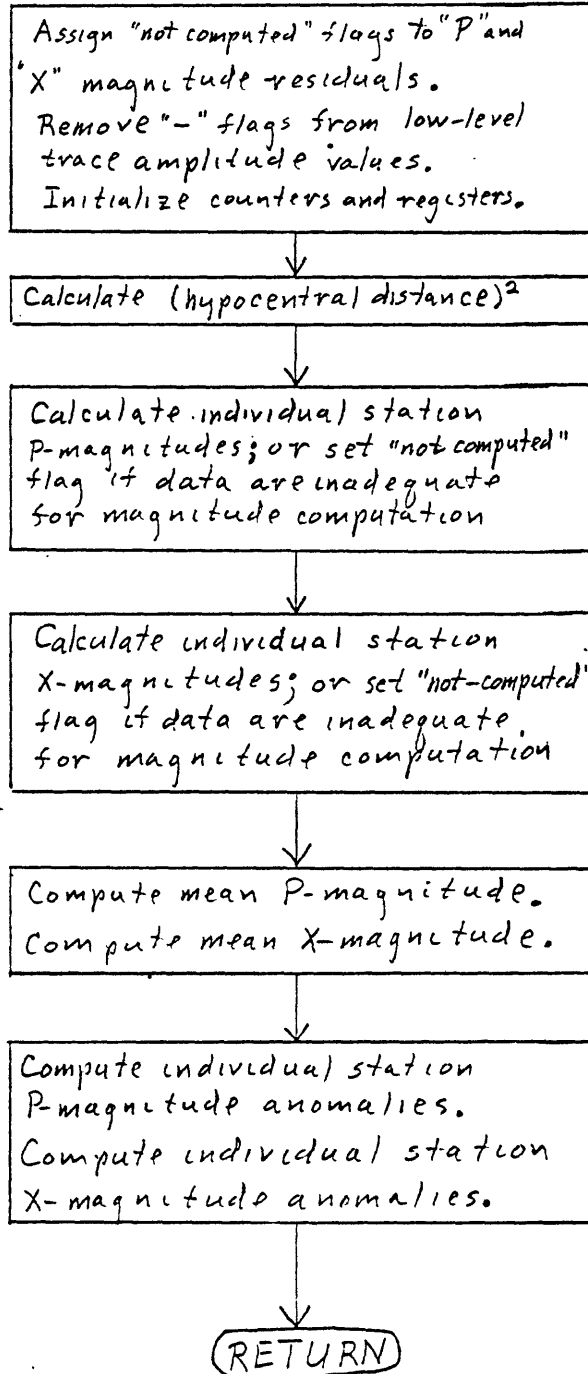 Assign "not computed" flags to "P" and
"X" magnitude residuals.
Remove "-" flags from low-level
trace amplitude values.
Initialize counters and registers.
Calculate (hypocentral distance)²
Calculate individual station
P-magnitudes; or set "not computed"
flag if data are inadequate
for magnitude computation
Calculate individual station
X-magnitudes; or set "not-computed"
flag if data are inadequate
for magnitude computation
Compute mean P-magnitude.
Compute mean X-magnitude.
Compute individual station
P-magnitude anomalies.
Compute individual station
X-magnitude anomalies.
RETURN